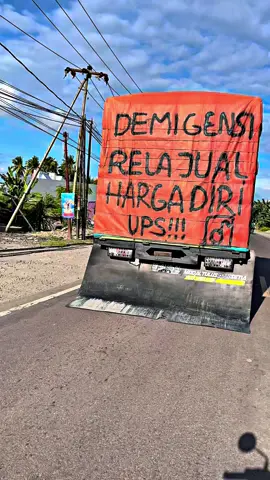 DEMI GENGSI
RELA JUAL
HARGA DIRI
UPS!!!